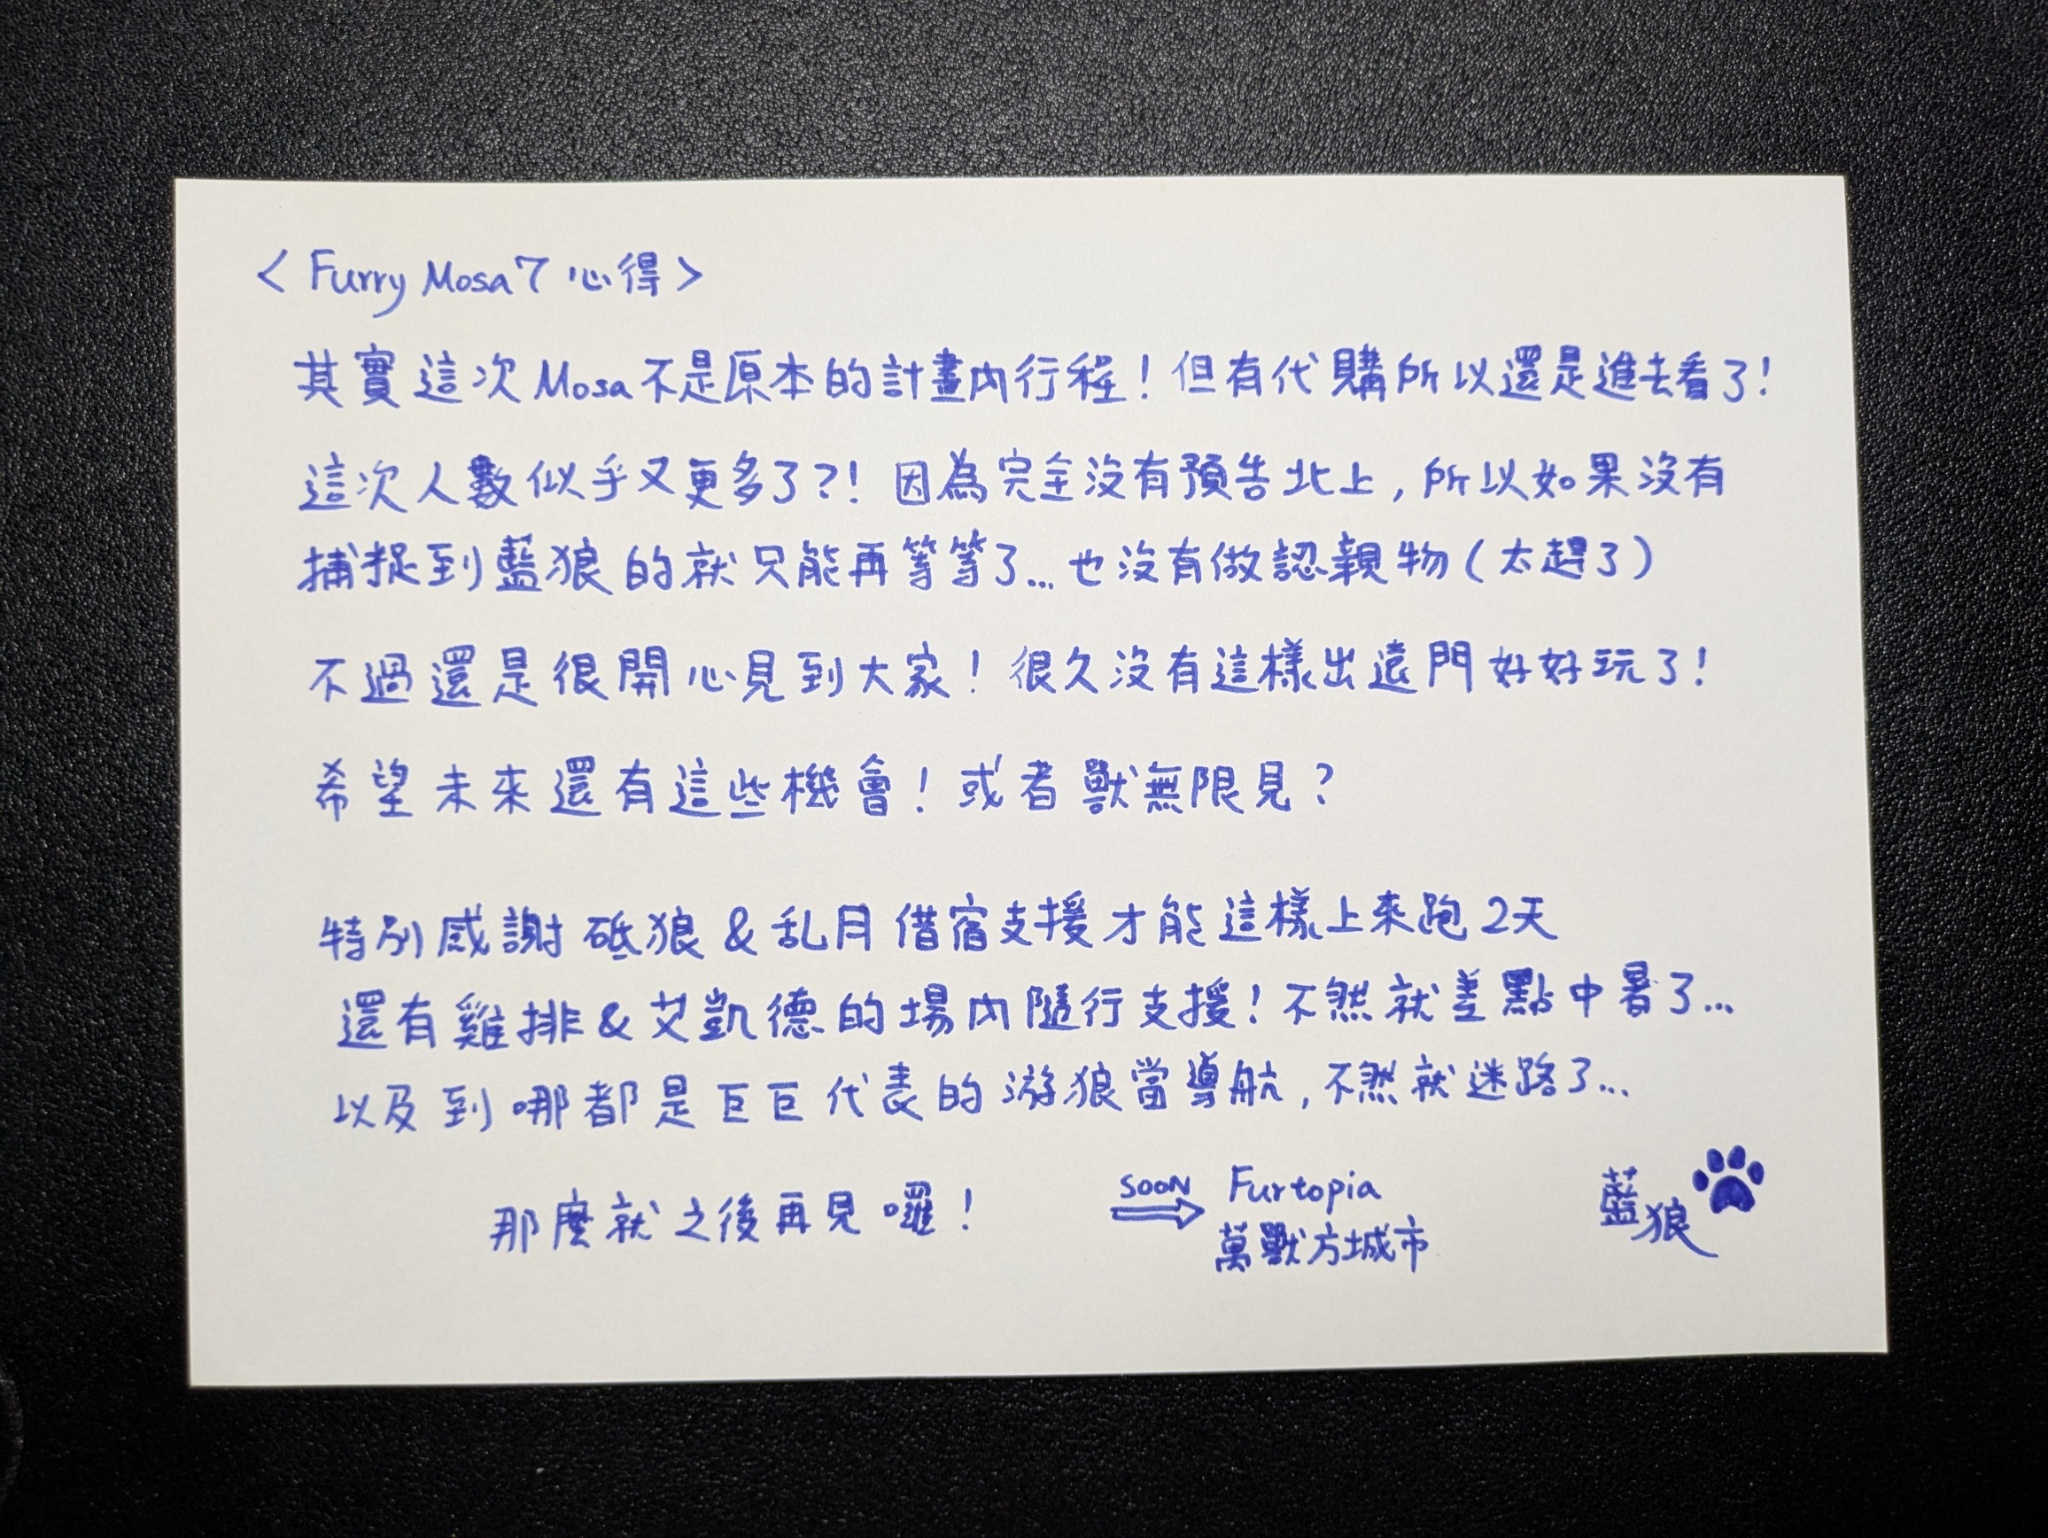 < Furry Mosa7 心得 >
其實這次Mosa不是原本的計畫內行程！但有代購所以還是進去看了！
這次人數似乎又更多了?! 因為完全沒有預告北上，所以如果沒有
捕捉到藍狼的就只能再等等了...也沒有做認親物(太趕了)
不過還是很開心見到大家！很久沒有這樣出遠門好好玩了！
希望未來還有這些機會！或者獸無限見？
特別感謝砥狼&乱月借宿支援才能這樣上來跑2天
還有雞排&艾凱德的場內隨行支援！不然就差點中暑了...
以及到哪都是巨巨代表的游狼當導航，不然就迷路了...
那麼就之後再見囉！
SOON Furtopia
萬獸方城市
藍狼